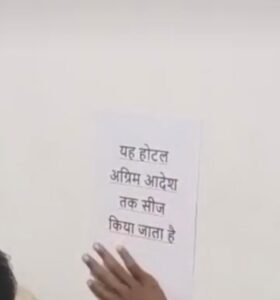 यह होटल
अग्रिम आदेश
तक सीज
किया जाता है